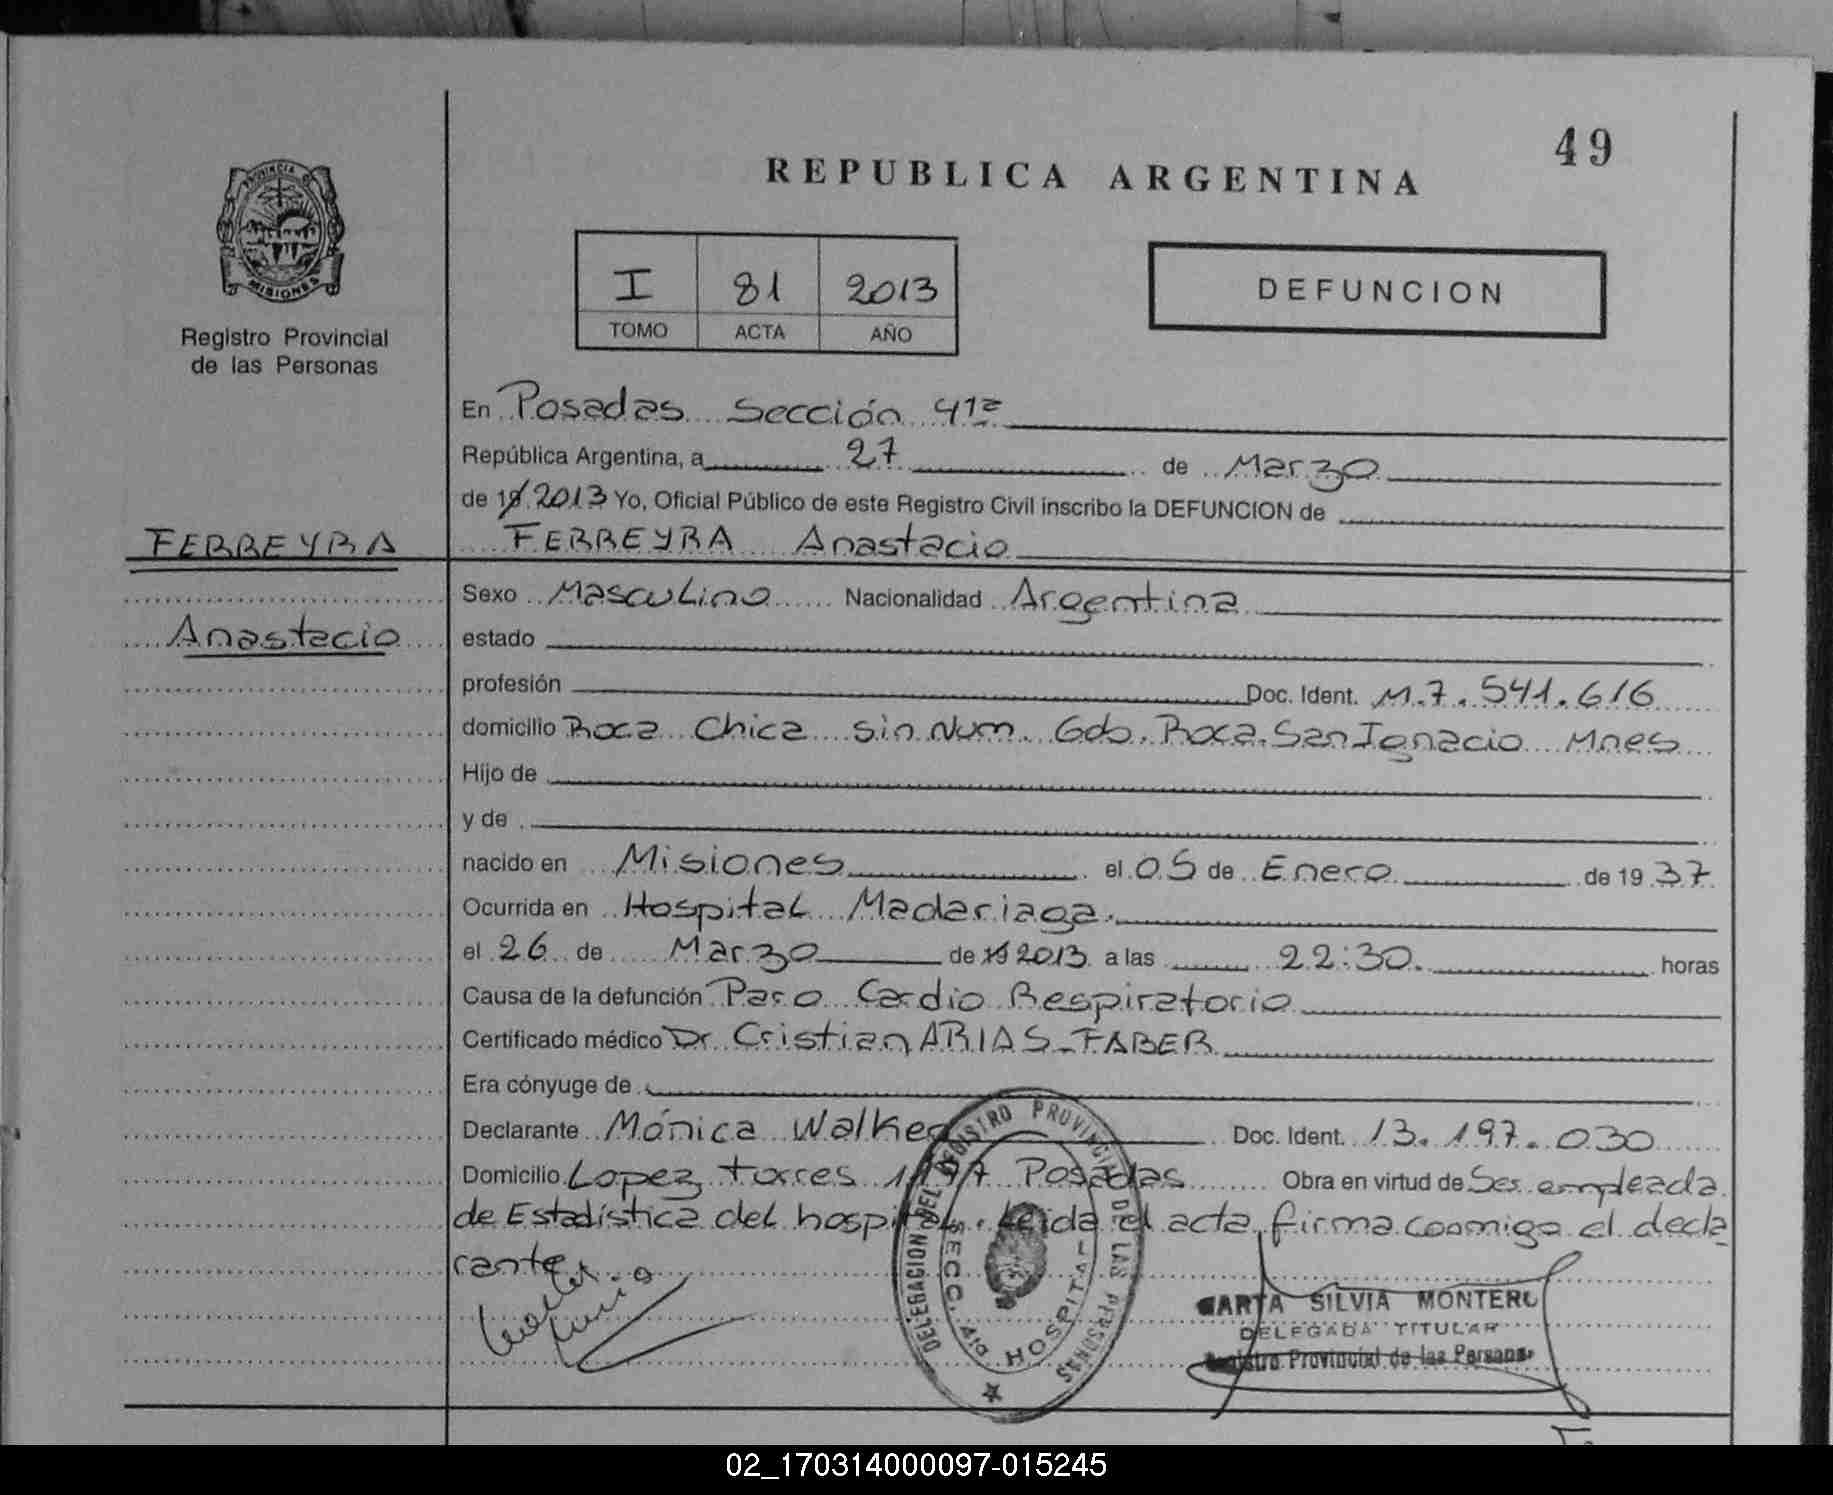 49
REPUBLICA ARGENTINA
PROVINCIA DE
MISIONES
Registro Provincial
de las Personas
I 81 2013
TOMO ACTA AÑO
DEFUNCION
En Posadas Sección 41ª
República Argentina, a 27 de Marzo
de 19 2013 Yo, Oficial Público de este Registro Civil inscribo la DEFUNCION de
FERREYRA Anastacio
FERREYRA
Anastacio
Sexo Masculino Nacionalidad Argentina
estado
profesión Doc. Ident. M.7.541.616
domicilio Roca Chica sin Num. Gdo. Roca. San Ignacio Mnes
Hijo de
y de
nacido en Misiones el 05 de Enero de 19 37
Ocurrida en Hospital Madariaga.
el 26 de Marzo de 19 2013 a las 22:30. horas
Causa de la defunción Paro Cardio Respiratorio
Certificado médico Dr. Cristian ARIAS-FABER
Era cónyuge de
Declarante Mónica Walker Doc. Ident. 13.197.030
Domicilio Lopez torres Posadas Obra en virtud de Ser empleada
de Estadística del hospital. Leida el acta, firma conmigo el decla
rante
DELEGACION DEL REGISTRO PROVINCIAL DE LAS PERSONAS
SECC. 41a HOSPITAL
MARTA SILVIA MONTERO
DELEGADA TITULAR
Registro Provincial de las Personas
02_170314000097-015245